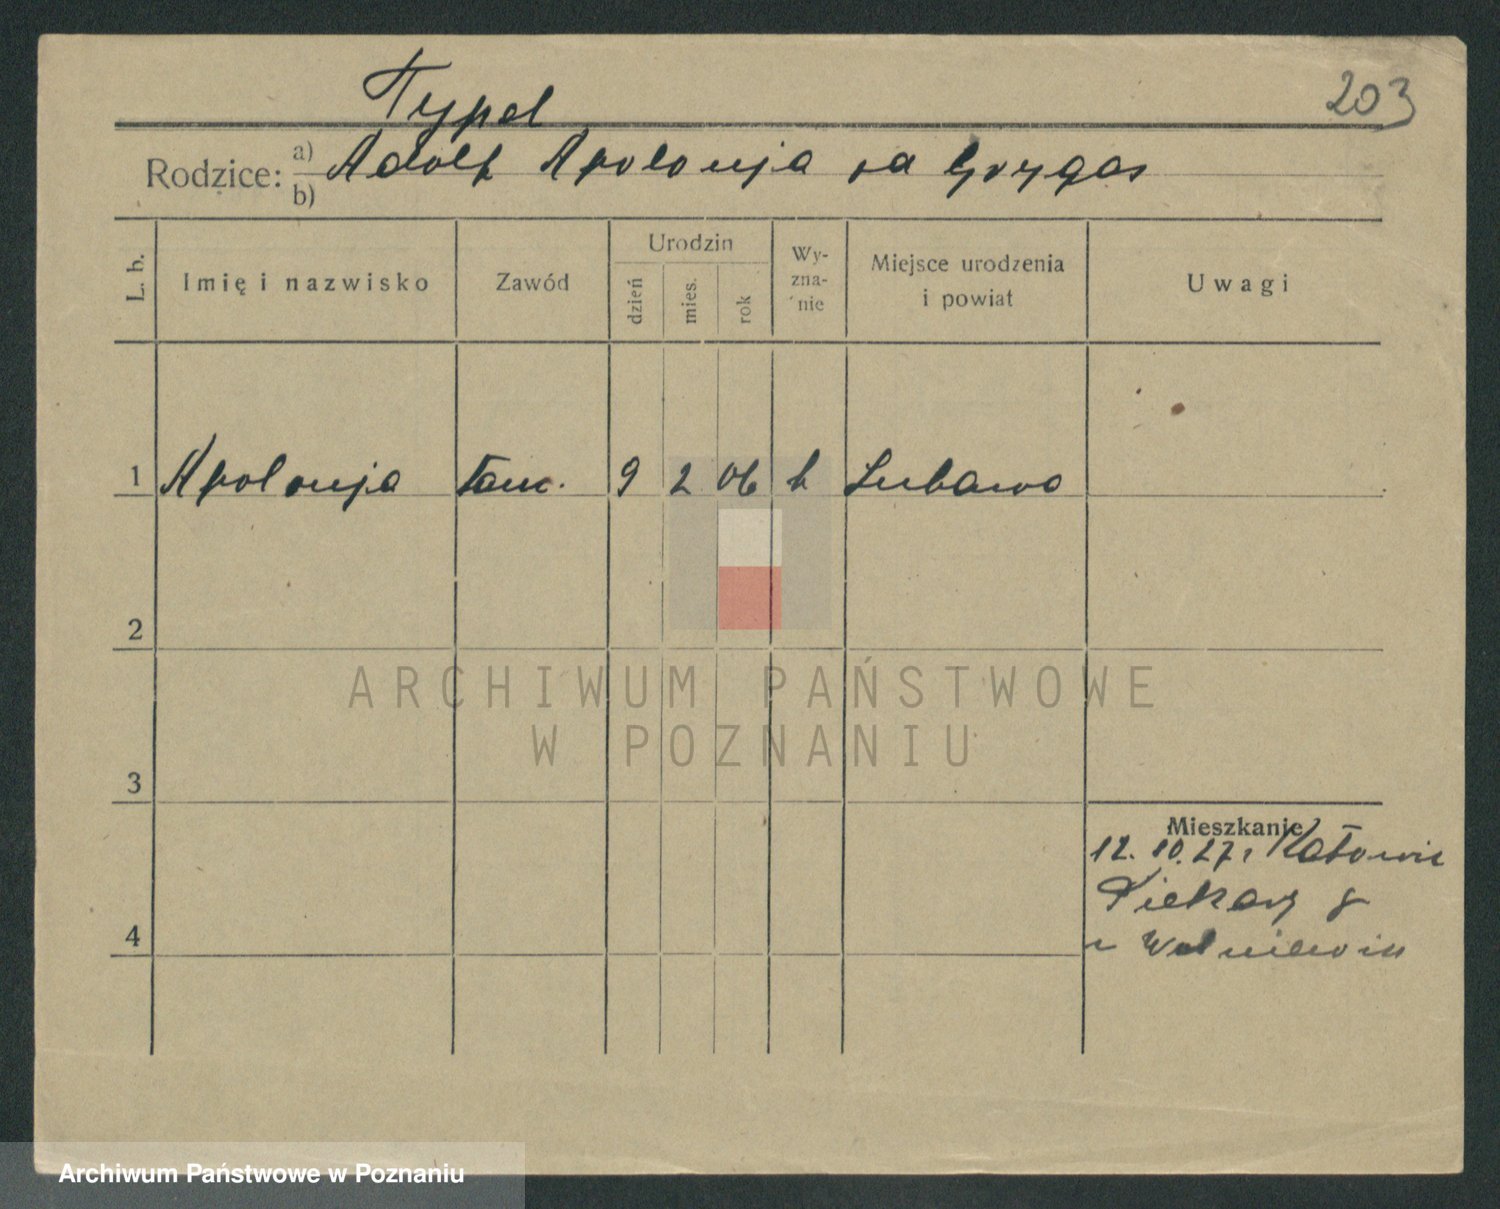 203
Typel
Rodzice: a) Adolf Apolonja
b)
L. b.
Imię i nazwisko
Zawód
Urodzin
dzień
mies.
rok
Wy-
zna-
nie
Miejsce urodzenia
i powiat
Uwagi
1 Apolonja 9 2 06 k Lubawa
2
3
4
Mieszkanie
12. 10. 27 r Katowic
Piekary 8
ARCHIWUM PAŃSTWOWE
W POZNANIU
Archiwum Państwowe w Poznaniu